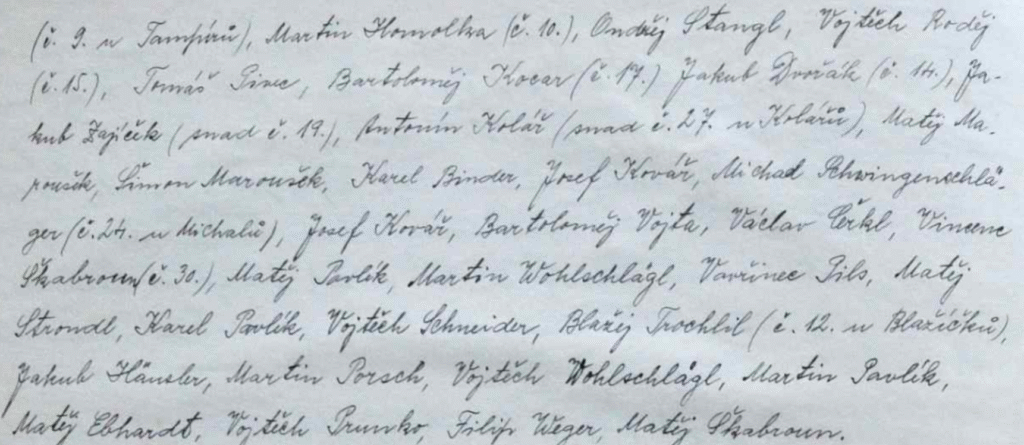 (č. 9. u Tampírů), Martin Homolka (č. 10.), Ondřej Stangl, Vojtěch Roděj
(č. 15.), Tomáš Pinec, Bartoloměj Kocar (č. 17.) Jakub Dvořák (č. 14.), Ja-
kub Zajíček (snad č. 19.), Antonín Kolář (snad č. 27. u Kolářů), Matěj Ma-
roušek, Šimon Maroušek, Karel Binder, Josef Kovář, Michal Schwingenschlä-
ger (č. 24. u Michalů), Josef Kovář, Bartoloměj Vojta, Václav Cerkl, Vincenc
Škabroun (č. 30.), Matěj Pavlík, Martin Wohlschlägl, Vavřinec Pils, Matěj
Strondl, Karel Pavlík, Vojtěch Schneider, Blažej Trochlil (č. 12. u Blažíčků),
Jakub Hänsler, Martin Porsch, Vojtěch Wohlschlägl, Martin Pavlík,
Matěj Ebhardt, Vojtěch Prunko, Filip Weger, Matěj Škabroun.